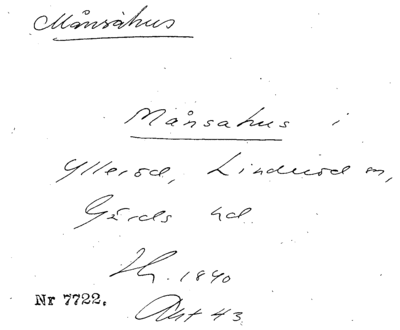 Månsahus
Månsahus i
Ylleröd, Linderöd sn,
Gärds hd
Hh. 1840
Nr 7722. Akt 43